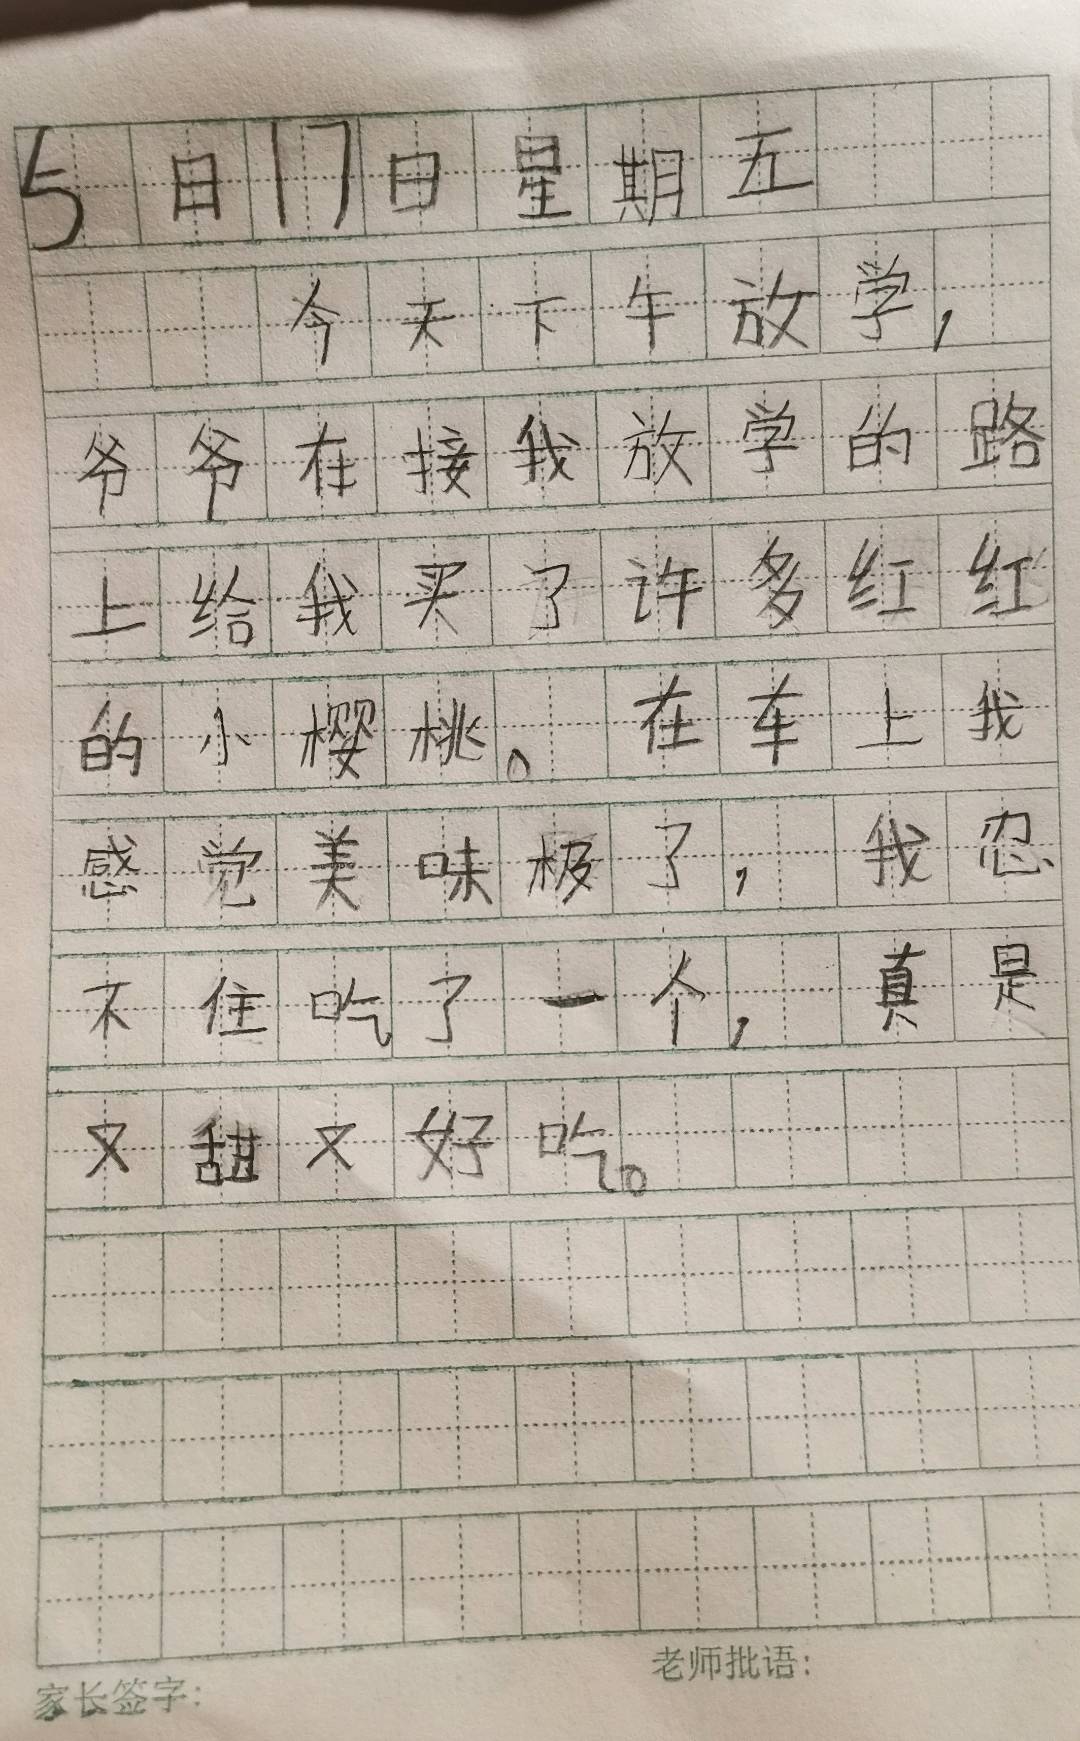 5月17日星期五
今天下午放学，
爷爷在接我放学的路
上给我买了许多红红
的小樱桃。在车上我
感觉美味极了，我忍
不住吃了一个，真是
又甜又好吃。
家长签字：
老师批语：